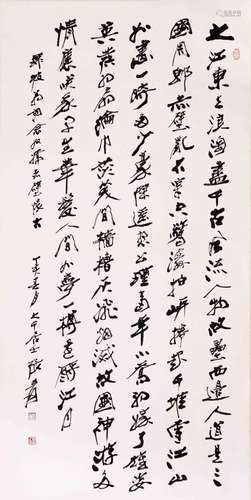 大江東去浪淘盡千古風流人物故壘西邊人道是三
國周郎赤壁亂石穿空驚濤拍岸捲起千堆雪江山
如畫一時多少豪傑遙想公瑾當年小喬初嫁了雄姿
英發羽扇綸巾談笑間檣櫓灰飛煙滅故國神遊多
情應笑我早生華髮人間如夢一樽還酹江月
坡 赤壁懷古
丁未春月 大千居士 張爰